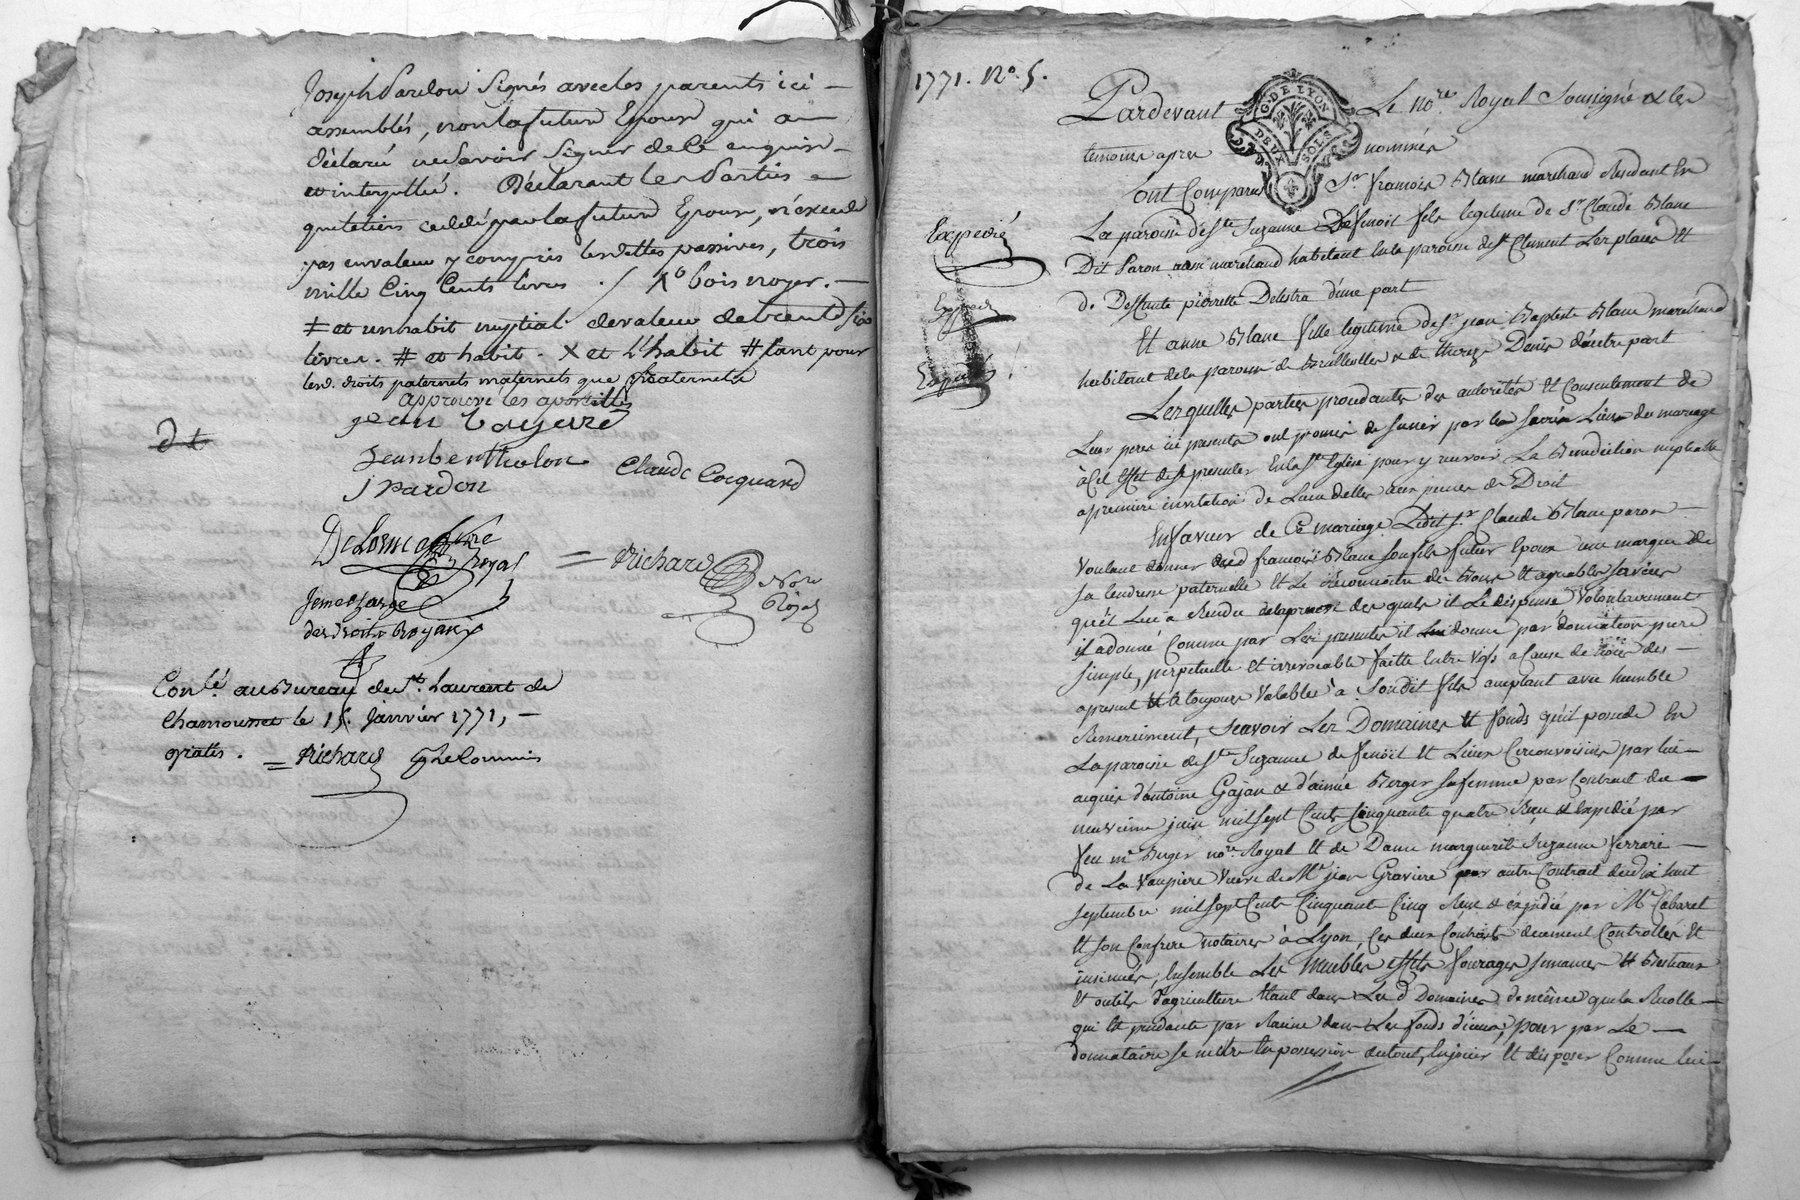 Joseph Pardon Signés avec les parents ici –
assemblés, non la future Epouse qui a –
déclaré ne Savoir Signer de ce enquise –
et interpellée. Déclarant les Parties –
que le tiers cedé par la future Epouse, n'excede
pas en valeur y compris les dettes passives, trois
mille cinq Cents livres ./ Xº bois noyer. –
‡ et un habit nuptial de valeur de trente six
livres. # et habit. X et L'habit # tant pour
les d. droits paternels maternels que fraternels
approuvé les apostilles
Jean
Jean bertholon Claude Cocquard
J Pardon
Delorme Nre Royal
= Richard Nore Royal
des droits Royaux
Con.lé au Bureau de St. Laurent de
Chamousset le 15. Janvier 1771, –
gratis. = Richard
1771. Nº. 5.
G. DE LYON
DEUX SOLS
Pardevant Le no.re Royal Soussigné & les
temoins apres nommés
Ont Comparu Sr. francois Blanc marchand Residant En
La paroisse de Ste Suzanne De fenoit fils legitime de Sr. Claude Blanc
Dit Paron aussi marchand habitant En la paroisse de St Clement Les places Et
d. Deffunte pierrette Delestra d'une part
Expedié
Et anne Blanc fille legitime de Sr. jean Baptiste Blanc marchand
habitant de la paroisse de Brullioles & de thereze Denis d'autre part
Expedié
Expedié
Lesquelles parties procedantes des autorités Et Consentement de
Leurs peres ici presents ont promis de s'unir par les sacrés Liens du mariage
à Cet Effet de se presenter En la Ste Eglise pour y recevoir La Benediction nuptialle
a premiere invitation de L'une d'elles aux peines de Droit
En faveur de Ce mariage Ledit Sr. Claude Blanc paron –
voulant donner aud francois Blanc son fils futur Epoux une marque de
sa tendresse paternelle Et Le reconnoitre des Bons Et agreables services
qu'il Lui à Rendu de la preuve des quels il Le dispense volontairement
il a donné Comme par Les presentes il donne par donnation pure
simple, perpetuelle Et irrevocable faitte Entre vifs a Cause de noces des –
apresent Et a toujours valable à Son dit fils acceptant avec humble
Remerciment, Scavoir Les Domaines Et fonds qu'il possede En
La paroisse de Ste Suzanne de fenoit Et Lieux Circonvoisins par lui –
acquis d'antoine Gajan & d'aimée Berger sa femme par Contract du –
neuvieme juin mil sept Cents Cinquante quatre Recu & expedié par
feu me Berger no.re Royal Et de Dame marguerite Suzanne ferrari –
de La Vaupiere veuve de Mr. jean Graviere par autre Contract du dix huit
septembre mil sept Cents Cinquante Cinq Recu & expedié par Me Cabaret
Et son Confrere notaires à Lyon, Ces deux Contracts decement Controllés Et
insinués; Ensemble Les Meubles effets fourages semances Et Bestiaux
Et outils d'agriculture Etant dans Les d Domaines, de même que la Recolte –
qui Est pendante par Racine dans Les fonds d'iceux, pour par Le –
donnataire se mettre En possession du tout, En jouir Et disposer Comme lui –